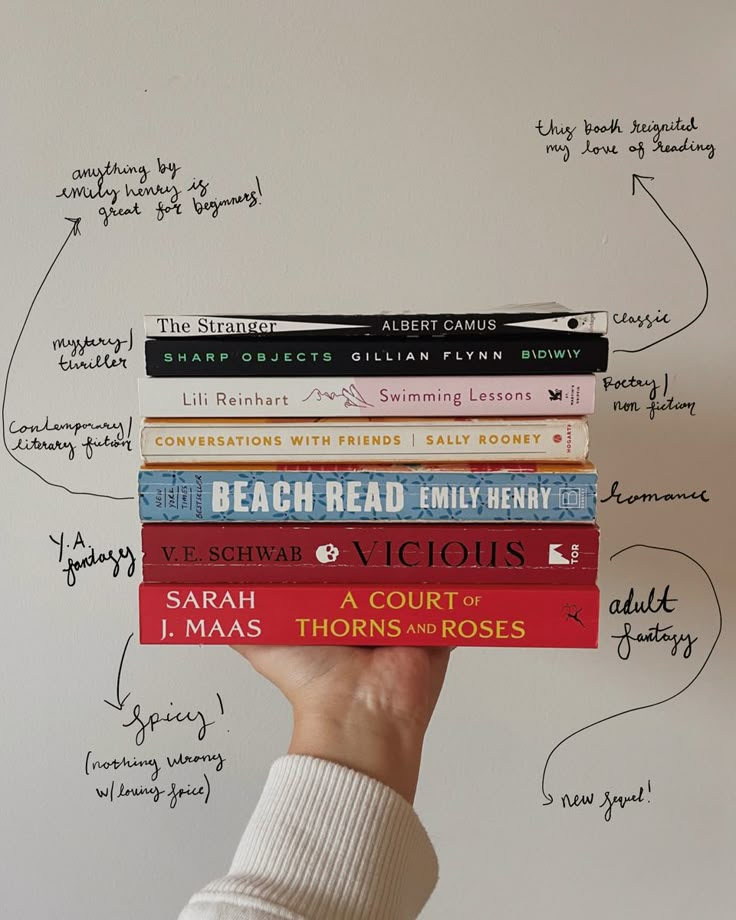 this book reignited
my love of reading
anything by
emily henry is
great for beginners!
The Stranger ALBERT CAMUS
classic
mystery/
thriller
SHARP OBJECTS GILLIAN FLYNN B\D\W\Y
Lili Reinhart Swimming Lessons
Poetry/
non fiction
contemporary/
literary fiction
CONVERSATIONS WITH FRIENDS | SALLY ROONEY HOGARTH
NEW YORK TIMES BESTSELLER BEACH READ EMILY HENRY
romance
Y.A.
fantasy
V. E. SCHWAB VICIOUS TOR
SARAH J. MAAS
A COURT OF THORNS AND ROSES
adult
fantasy
spicy!
(nothing wrong
w/ loving spice)
new sequel!